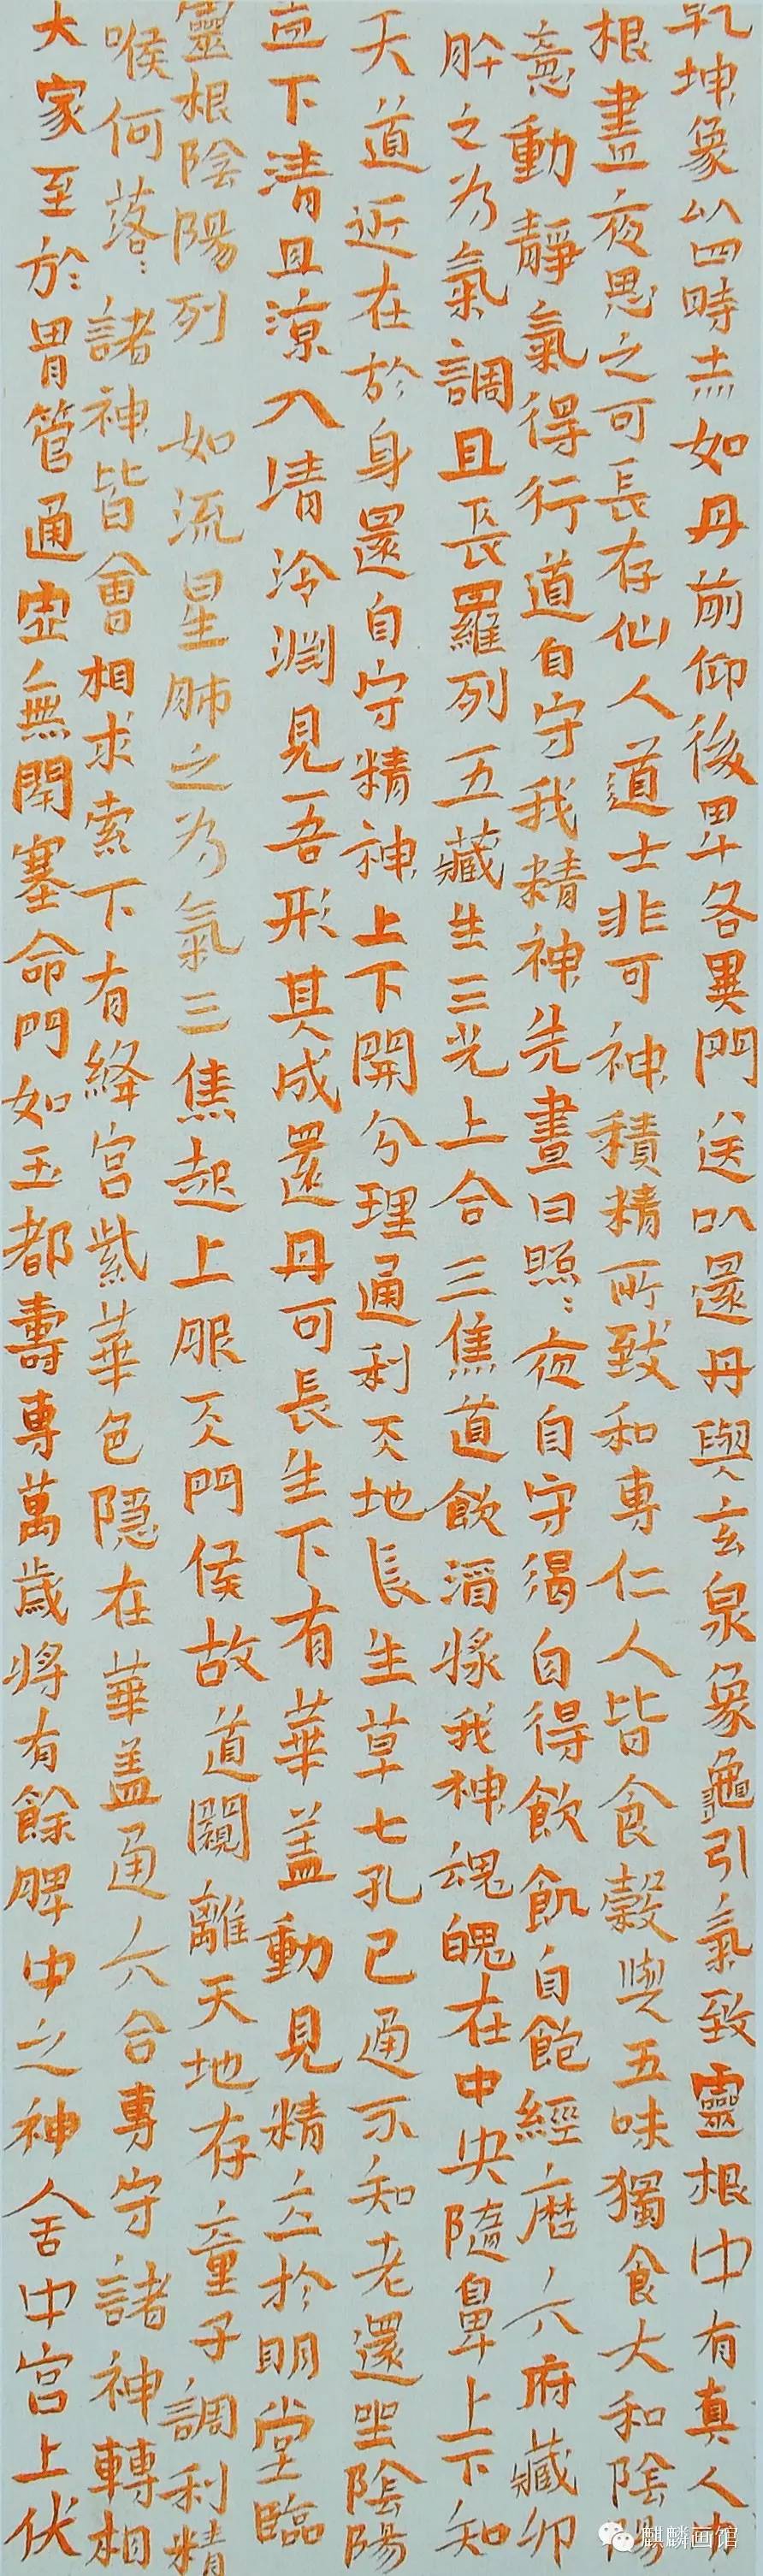 乾坤象以四時赤如丹前仰後卑各異門送以還丹與玄泉象龜引氣致靈根中有真人巾
根晝夜思之可長存仙人道士非可神積精所致和專仁人皆食穀與五味獨食大和陰陽
意動靜氣得行道自守我精神先晝日照：夜自守渴自得飲飢自飽經歷六府藏卯
肝之為氣調且長羅列五藏生三光上合三焦道飲漿我神魂魄在中央隨鼻上下知
天道近在於身還自守精神上下開分理通利天地長生草七孔已通不知老還坐陰陽
下清且涼入清泠淵見吾形其成還丹可長生下有華蓋動見精立於明堂臨
靈根陰陽列 如流星肺之為氣三焦起上服天門侯故道闚離天地存童子調利精
喉何落：諸神皆會相求索下有絳宮紫華色隱在華蓋通六合專守諸神轉相
大家至於胃管通虛無閉塞命門如玉都壽專萬歲將有餘脾中之神舍中宮上伏
麒麟画馆